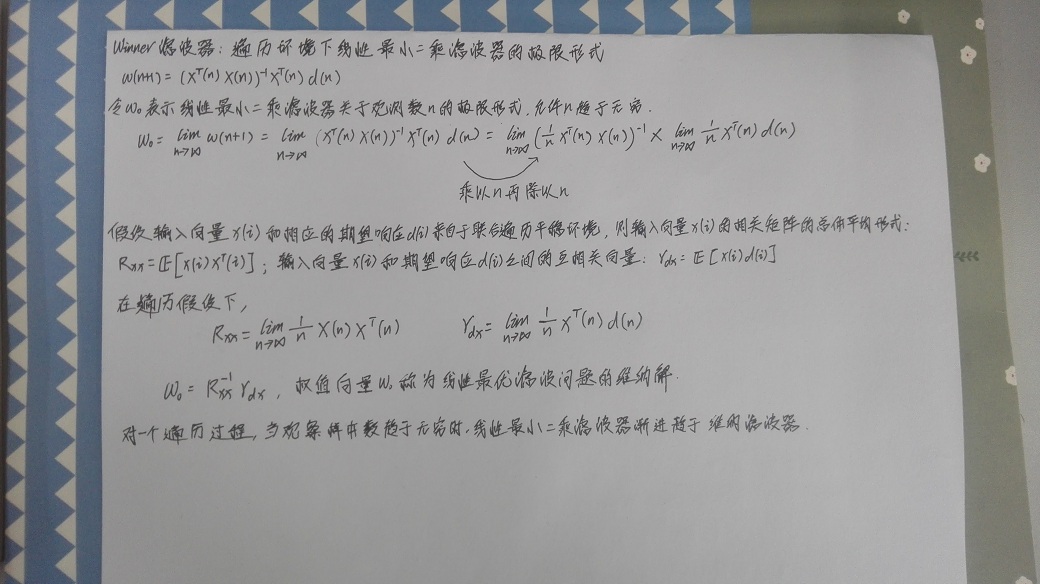 Winner滤波器：遍历环境下线性最小二乘滤波器的极限形式
w(n+1) = (Xᵀ(n) X(n))⁻¹ Xᵀ(n) d(n)
令w₀表示线性最小二乘滤波器关于观测数n的极限形式，允许n趋于无穷．
w₀ = lim_{n→∞} w(n+1) = lim_{n→∞} (Xᵀ(n) X(n))⁻¹ Xᵀ(n) d(n) = lim_{n→∞} (1/n Xᵀ(n) X(n))⁻¹ × lim_{n→∞} 1/n Xᵀ(n) d(n)
乘以n再除以n
假设输入向量x(i)和相应的期望响应d(i)来自于联合遍历平稳环境，则输入向量x(i)的相关矩阵的总体平均形式：
Rₓₓ = E[x(i) xᵀ(i)]；输入向量x(i)和期望响应d(i)之间的互相关向量：r_dx = E[x(i)d(i)]
在遍历假设下，
Rₓₓ = lim_{n→∞} 1/n X(n) Xᵀ(n) r_dx = lim_{n→∞} 1/n Xᵀ(n) d(n)
w₀ = Rₓₓ⁻¹ r_dx，权值向量w₀称为线性最优滤波问题的维纳解．
对一个遍历过程，当观察样本数趋于无穷时，线性最小二乘滤波器渐进趋于维纳滤波器．